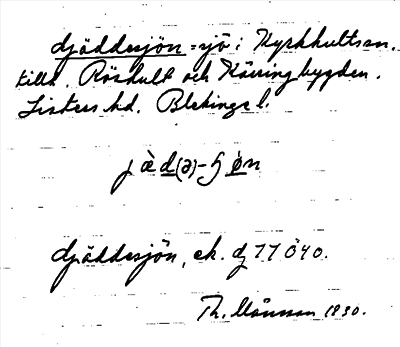 djäddesjön = sjö i Kyrkhultssn.
tillh. Röshult och Käringbygden.
Listers hd. Blekinge l.
jæ̀d(ə)-ʃø̀n
djäddesjön, ek. dz 77 Ö 40.
Th. Månsson 1930.